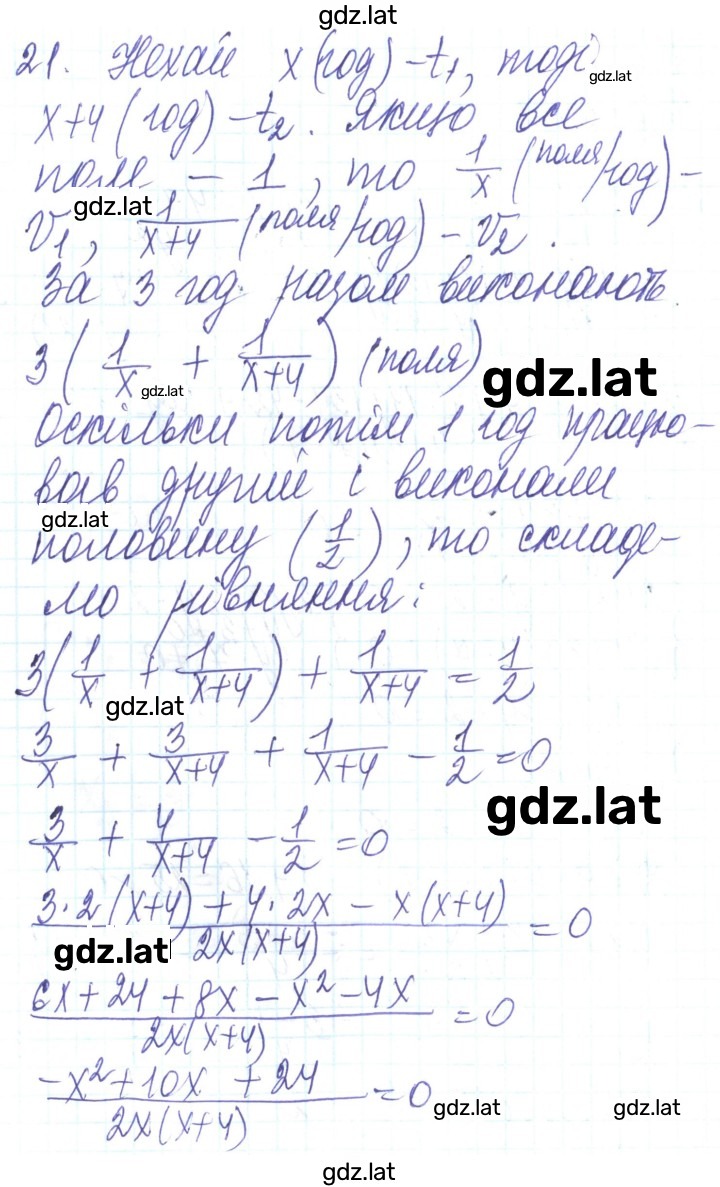 gdz.lat
21. Нехай x (год) - t₁, тоді
gdz.lat
x+4 (год) - t₂. Якщо все
поле - 1, то 1/x (поля/год) -
gdz.lat
V₁, 1/(x+4) (поля/год) - V₂.
За 3 год. разом виконають
3(1/x + 1/(x+4)) (поля)
gdz.lat
gdz.lat
Оскільки потім 1 год працю-
вав другий і виконали
gdz.lat
половину (1/2), то складе-
мо рівняння:
3(1/x + 1/(x+4)) + 1/(x+4) = 1/2
gdz.lat
3/x + 3/(x+4) + 1/(x+4) - 1/2 = 0
gdz.lat
3/x + 4/(x+4) - 1/2 = 0
(3·2(x+4) + 4·2x - x(x+4))/(2x(x+4)) = 0
gdz.lat
(6x + 24 + 8x - x² - 4x)/(2x(x+4)) = 0
(-x² + 10x + 24)/(2x(x+4)) = 0
gdz.lat gdz.lat
gdz.lat